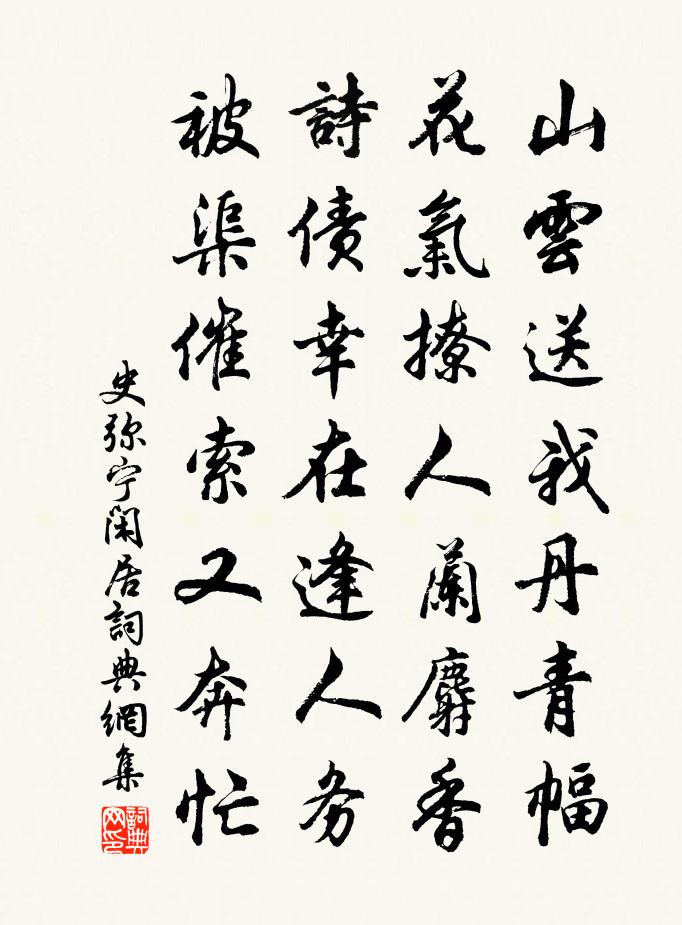 山雲送我丹青幅
花氣撩人蘭麝香
詩債幸在逢人务
被渠催索又奔忙
史弥宁闲居詞典網集
詞典网印